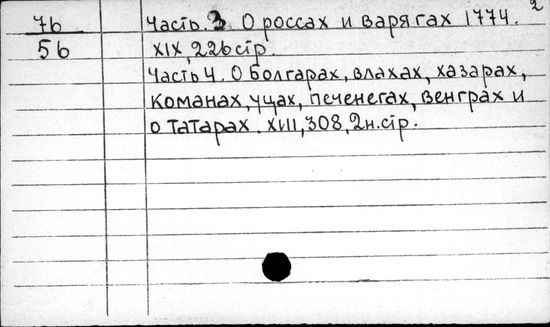 2
7б Часть.3. О россах и варягах 1774.
5б XIX, 226 стр.
Часть 4. О болгарах, влахах, хазарах,
команах, уцах, печенегах, венграх и
о татарах. XVIII, 308, 2н.стр.